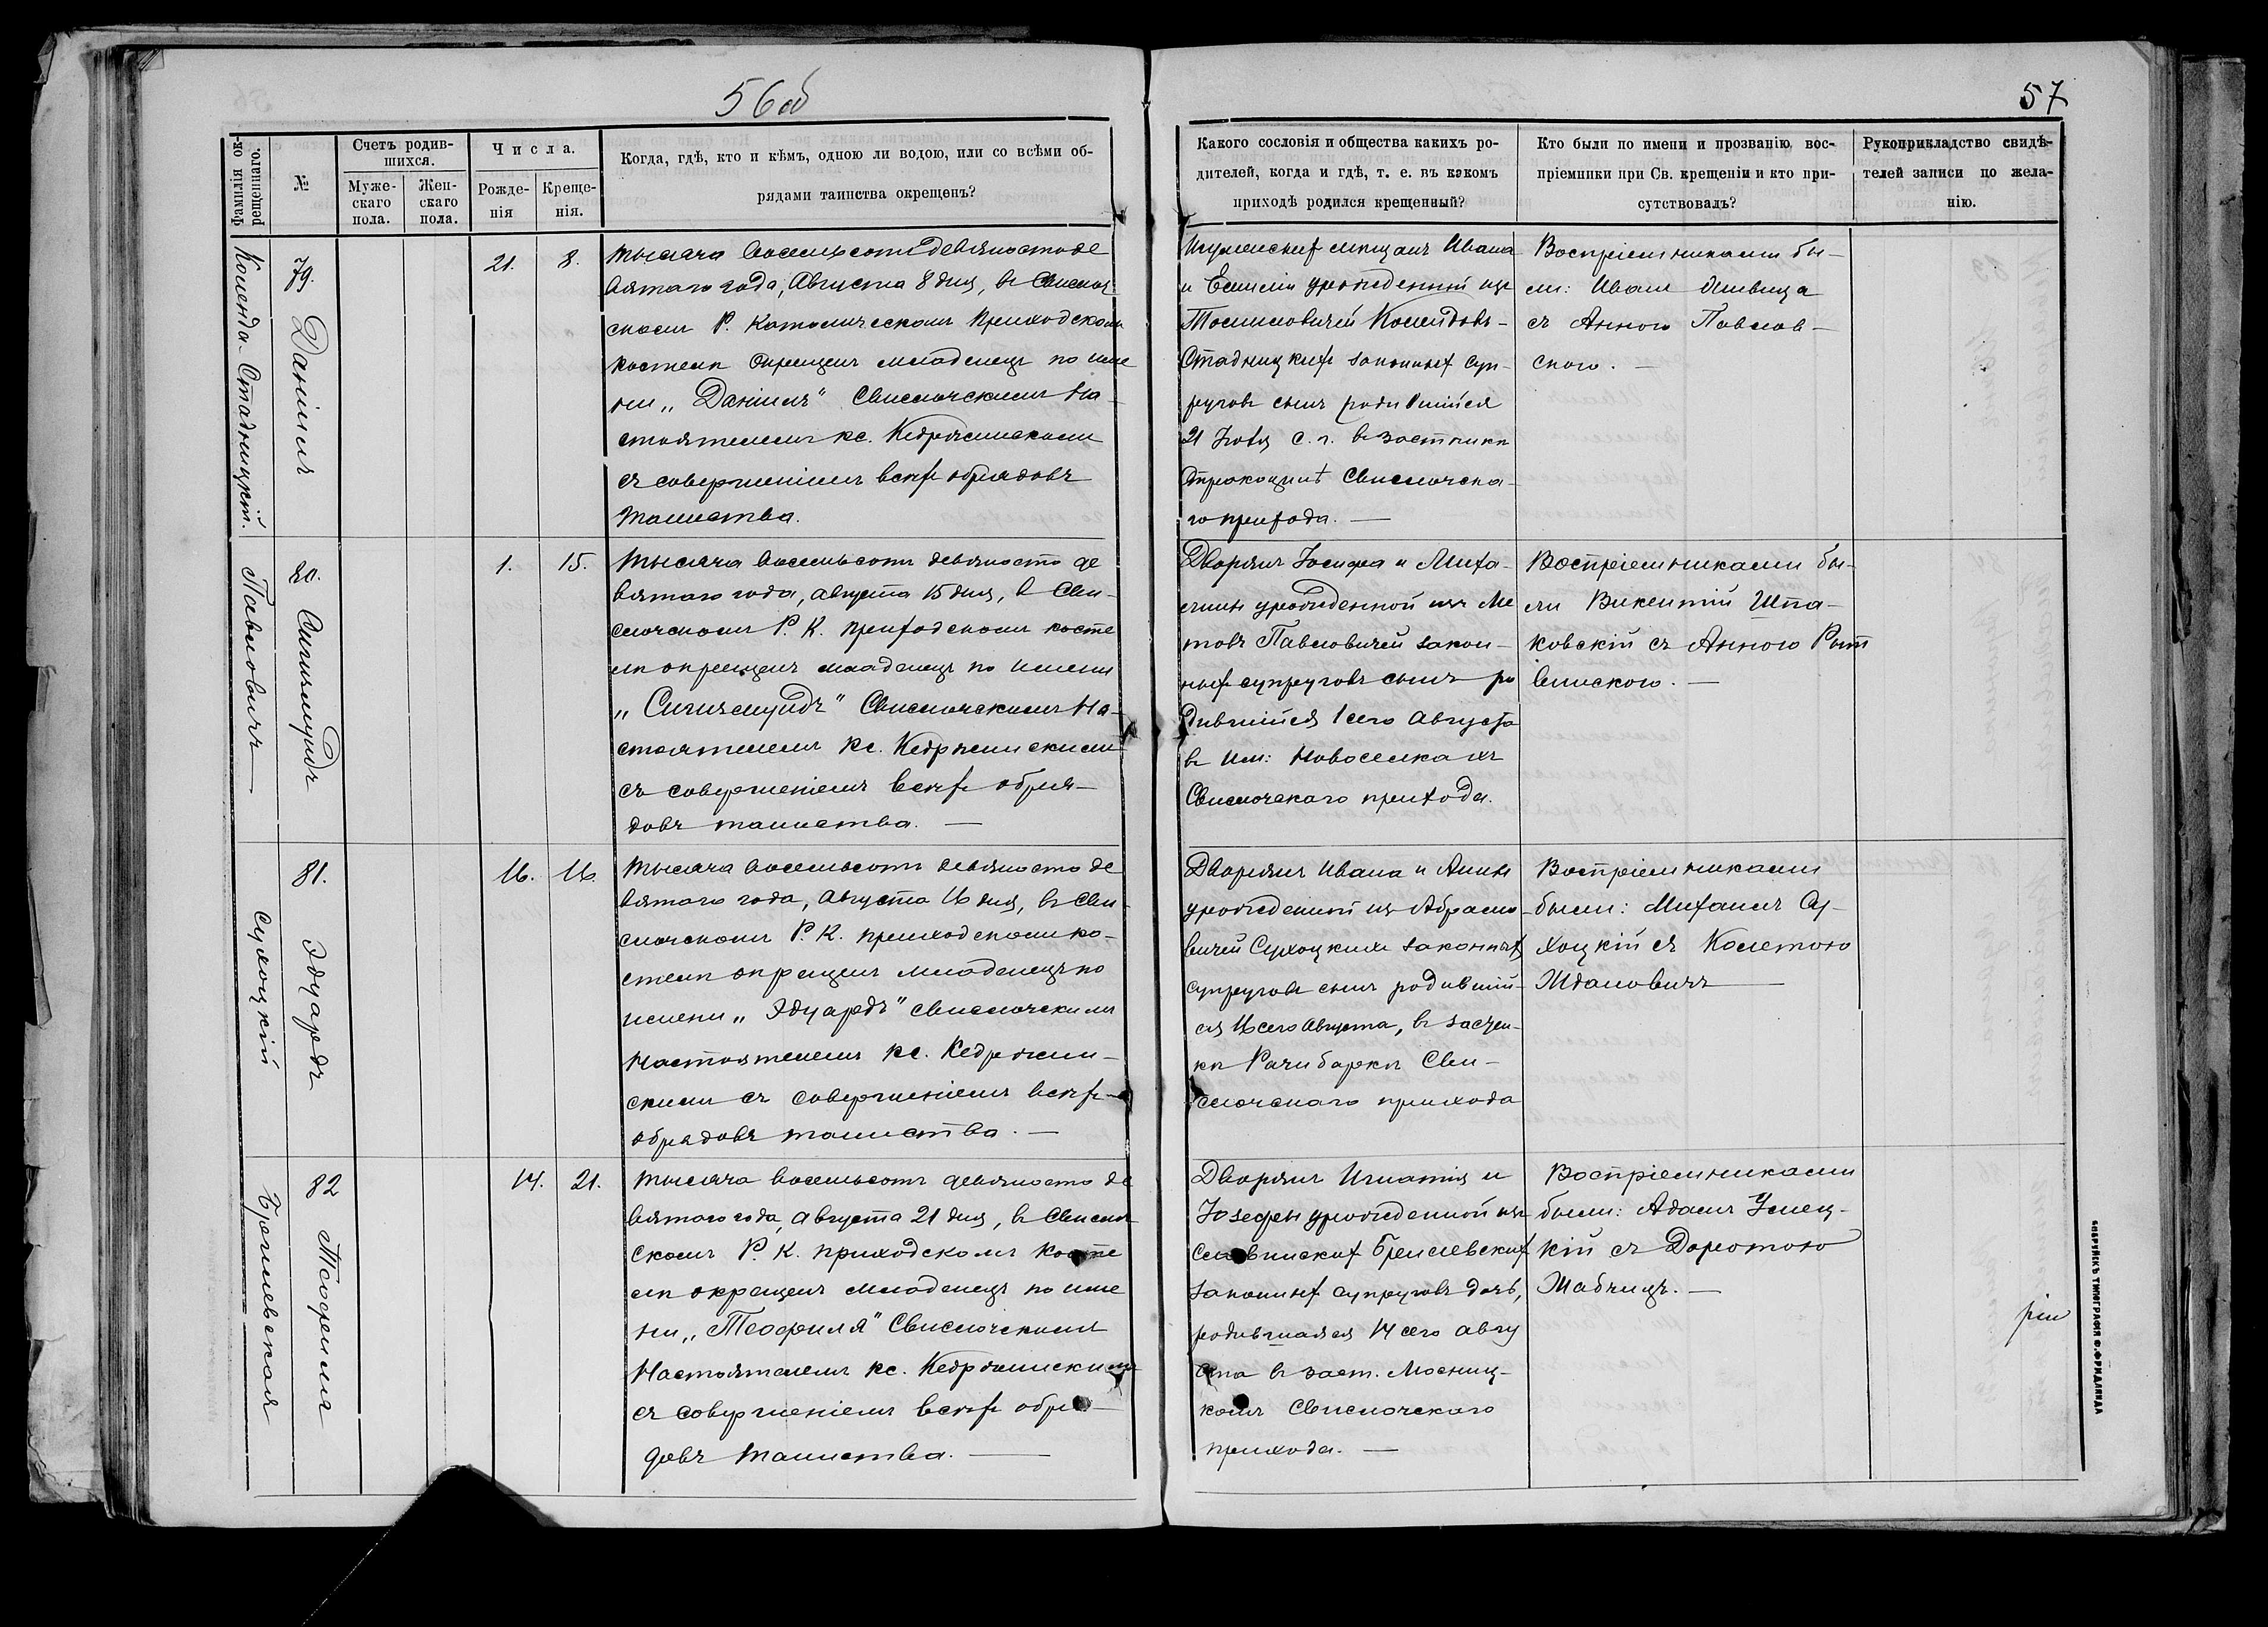 56об
57
Фамилія ок-
рещеннаго.
№
Счетъ родив-
шихся.
Муже-
скаго
пола.
Жен-
скаго
пола.
Числа.
Рожде-
нія
Креще-
нія.
Когда, гдѣ, кто и кѣмъ, одною ли водою, или со всѣми об-
рядами таинства окрещенъ?
Какого сословія и общества какихъ ро-
дителей, когда и гдѣ, т. е. въ какомъ
приходѣ родился крещенный?
Кто были по имени и прозванію вос-
пріемники при Св. крещеніи и кто при-
сутствовалъ?
Рукоприкладство свидѣ-
телей записи по жела-
нію.
Коленда-Стадницкій.
79.
Даніилъ
21.
8.
Тысяча восемьсотъ девяносто де
вятаго года, Августа 8 дня, въ Свислоч
скомъ Р. Католическомъ Приходскомъ
костелѣ окрещенъ младенецъ по име
ни „Даніилъ" Свислочскимъ На-
стоятелемъ кс. Кедржинскимъ
съ совершеніемъ всѣхъ обрядовъ
таинства.
Игуменскихъ мѣщанъ Ивана
и Емиліи урожденной изъ
Колендовъ-
Стадницкихъ законныхъ суп-
руговъ сынъ родившійся
21 Іюля с. г. въ застѣнкѣ
Свислочска-
го прихода. —
Воспріемниками бы-
ли: Иванъ
съ Анною Павлов-
скою. —
Павловичъ
80.
Сигизмундъ
1.
15.
Тысяча восемьсотъ девяносто де
вятаго года, августа 15 дня, въ Сви-
слочскомъ Р. К. приходскомъ косте
лѣ окрещенъ младенецъ по имени
„Сигизмундъ" Свислочскимъ На-
стоятелемъ кс. Кедржинскимъ
съ совершеніемъ всѣхъ обря-
довъ таинства. —
Дворянъ Іосифа и Миха-
лины урожденной изъ Ме
товъ Павловичей закон-
ныхъ супруговъ сынъ ро
дившійся 1 сего Августа
въ им: Новоселкахъ
Свислочскаго прихода.
Воспріемниками бы-
ли Викентій Шпа-
ковскій съ Анною
Сухоцкій
81.
Эдуардъ
16.
16.
Тысяча восемьсотъ девяносто де
вятаго года, Августа 16 дня, въ Сви-
слочскомъ Р. К. приходскомъ ко-
стелѣ окрещенъ младенецъ по
имени „Эдуардъ" Свислочскимъ
Настоятелемъ кс. Кедржин-
скимъ съ совершеніемъ всѣхъ
обрядовъ таинства. —
Дворянъ Ивана и Анны
урожденной изъ Абрамо-
вичей Сухоцкихъ законныхъ
супруговъ сынъ родившій-
ся 16 сего Августа, въ застѣн-
кѣ Рачиборкѣ Сви-
слочскаго прихода
Воспріемниками
были: Михаилъ Су-
хоцкій съ Колетою
Жданович ъ —
82
Теофиля
14.
21.
Тысяча восемьсотъ девяносто де
вятаго года, августа 21 дня, въ Свислоч
скомъ Р. К. приходскомъ косте
лѣ окрещенъ младенецъ по име
ни „Теофиля" Свислочскимъ
Настоятелемъ кс. Кедржинскимъ
съ совершеніемъ всѣхъ обря-
довъ таинства. —
Дворянъ Игнатія и
Іозефы урожденной изъ
законныхъ супруговъ дочь,
родившаяся 14 сего авгу
ста въ заст.
Свислочскаго
прихода. —
Воспріемниками
были: Адамъ
кій съ Доротою
Жабчицъ. —
ТИПОГРАФІЯ Ф. ФРИДЛЯНДА